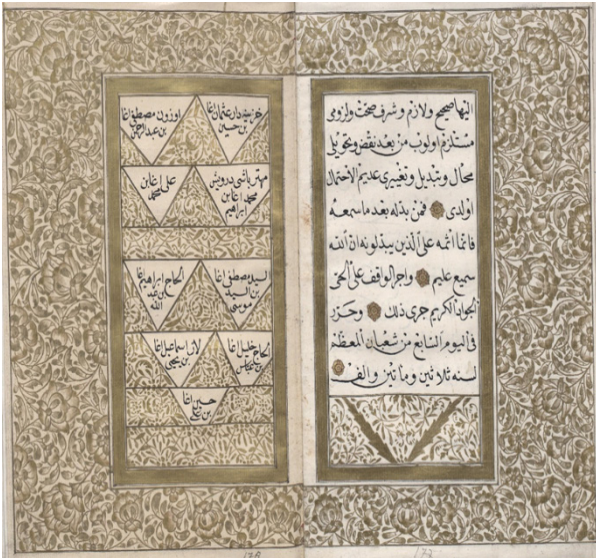 اليها صحيح ولازم وشرف صحت ولزومى
مستلزم اولوب من بعد نقض وتحويلى
محال وتبديل وتغييرى عديم الاحتمال
اولدى فمن بدله بعد ما سمعه
فانما اثمه على الذين يبدلونه ان الله
سميع عليم واجر الواقف على الحى
الجواد الكريم جرى ذلك وحرر
فى اليوم السابع من شعبان المعظم
لسنه ثلاثين ومائتين والف
خزينه دار عثمان اغا
بن حسين
اوزون مصطفى اغا
بن عبد الرحمن
مهتر باشى درويش
محمد اغا بن
ابراهيم
على اغا بن
محمد
السيد مصطفى اغا
بن السيد
موسى
الحاج ابراهيم اغا
بن عبد
الله
الحاج خليل اغا
بن
لاز اسماعيل اغا
بن يحيى
حسين اغا
بن على